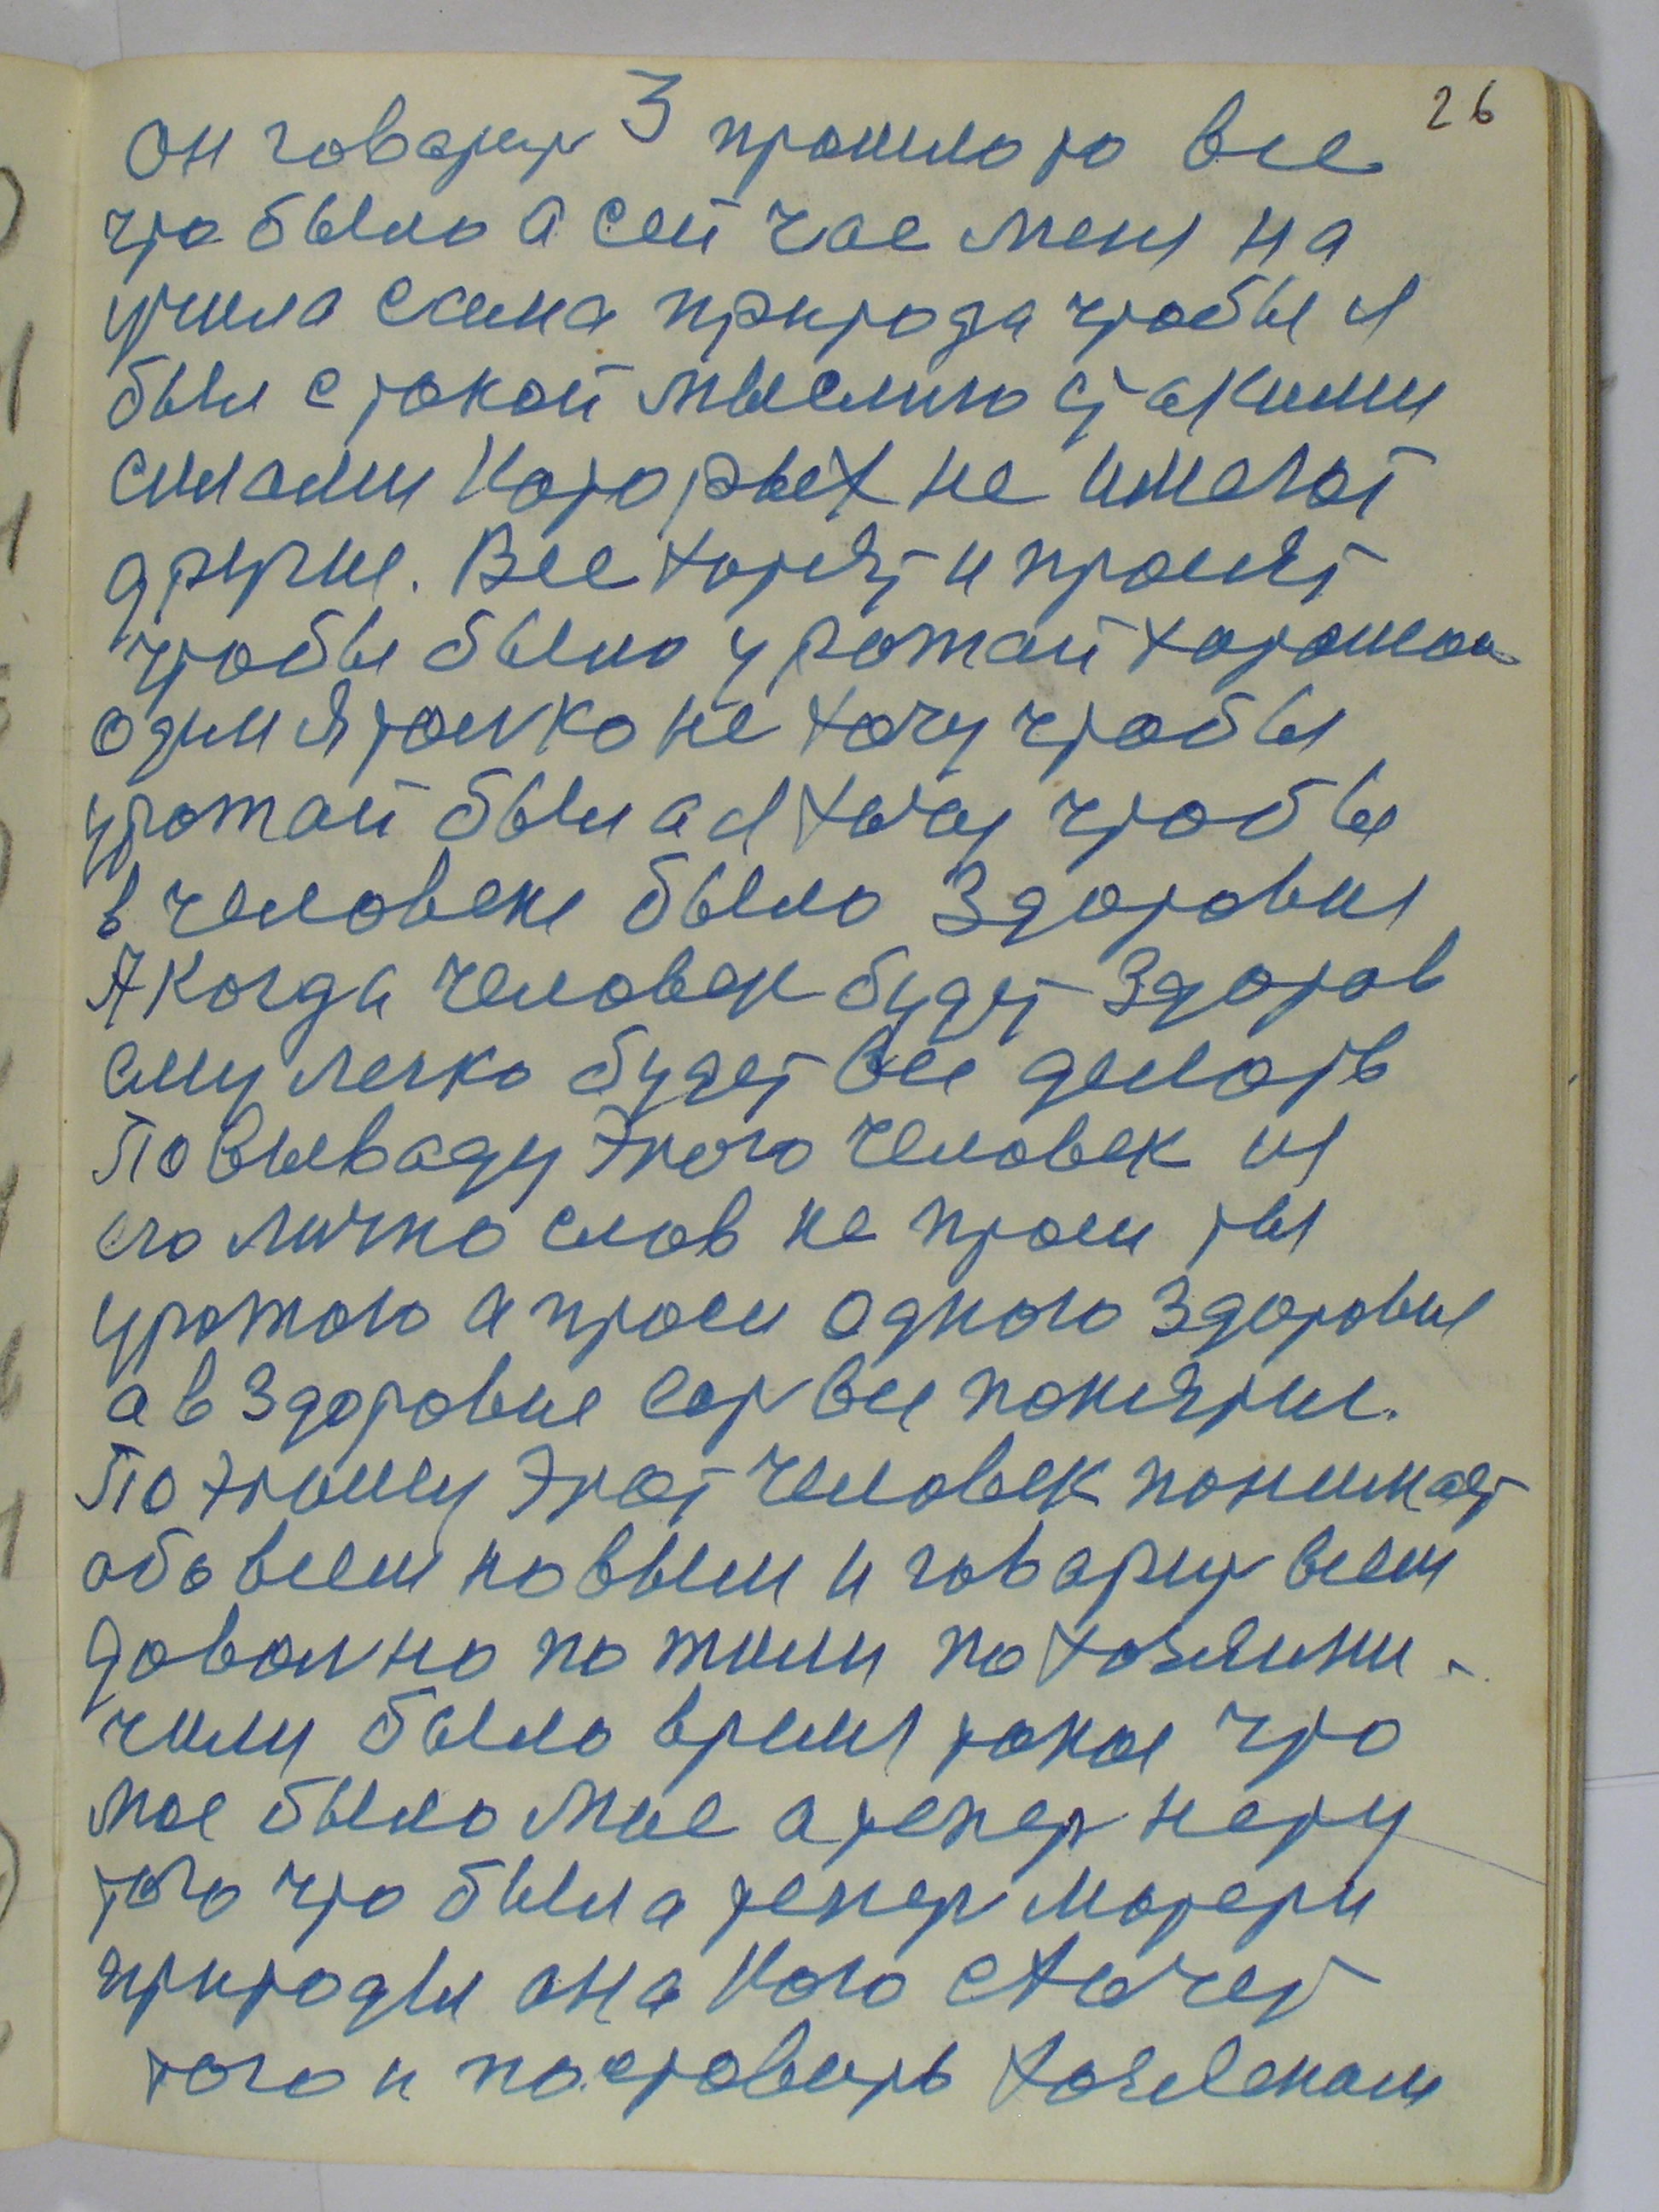 26
3
Он говарит прошло то все
что было а сей час меня на
учила сама природа чтобы я
был с такой мыслию с такими
силами которых не имеют
другие. Все хотят и просят
чтобы было урожай харошои
один я толко не хочу чтобы
урожай был а я хочу чтобы
в человеке было Здоровия
А когда человек будет Здоров
ему легко будет все делать
По вываду этого человек из
его лично слов не проси ты
урожаю а проси одного Здоровия
а в Здоровие ест все понятие.
По этому этот человек понимает
обо всем новым и говарит всем
доволно по жили по хозяини-
чили было время такое что
мое было мое а тепер нету
того что была тепер матери
природы она кого схочет
того и поставить хозяеном